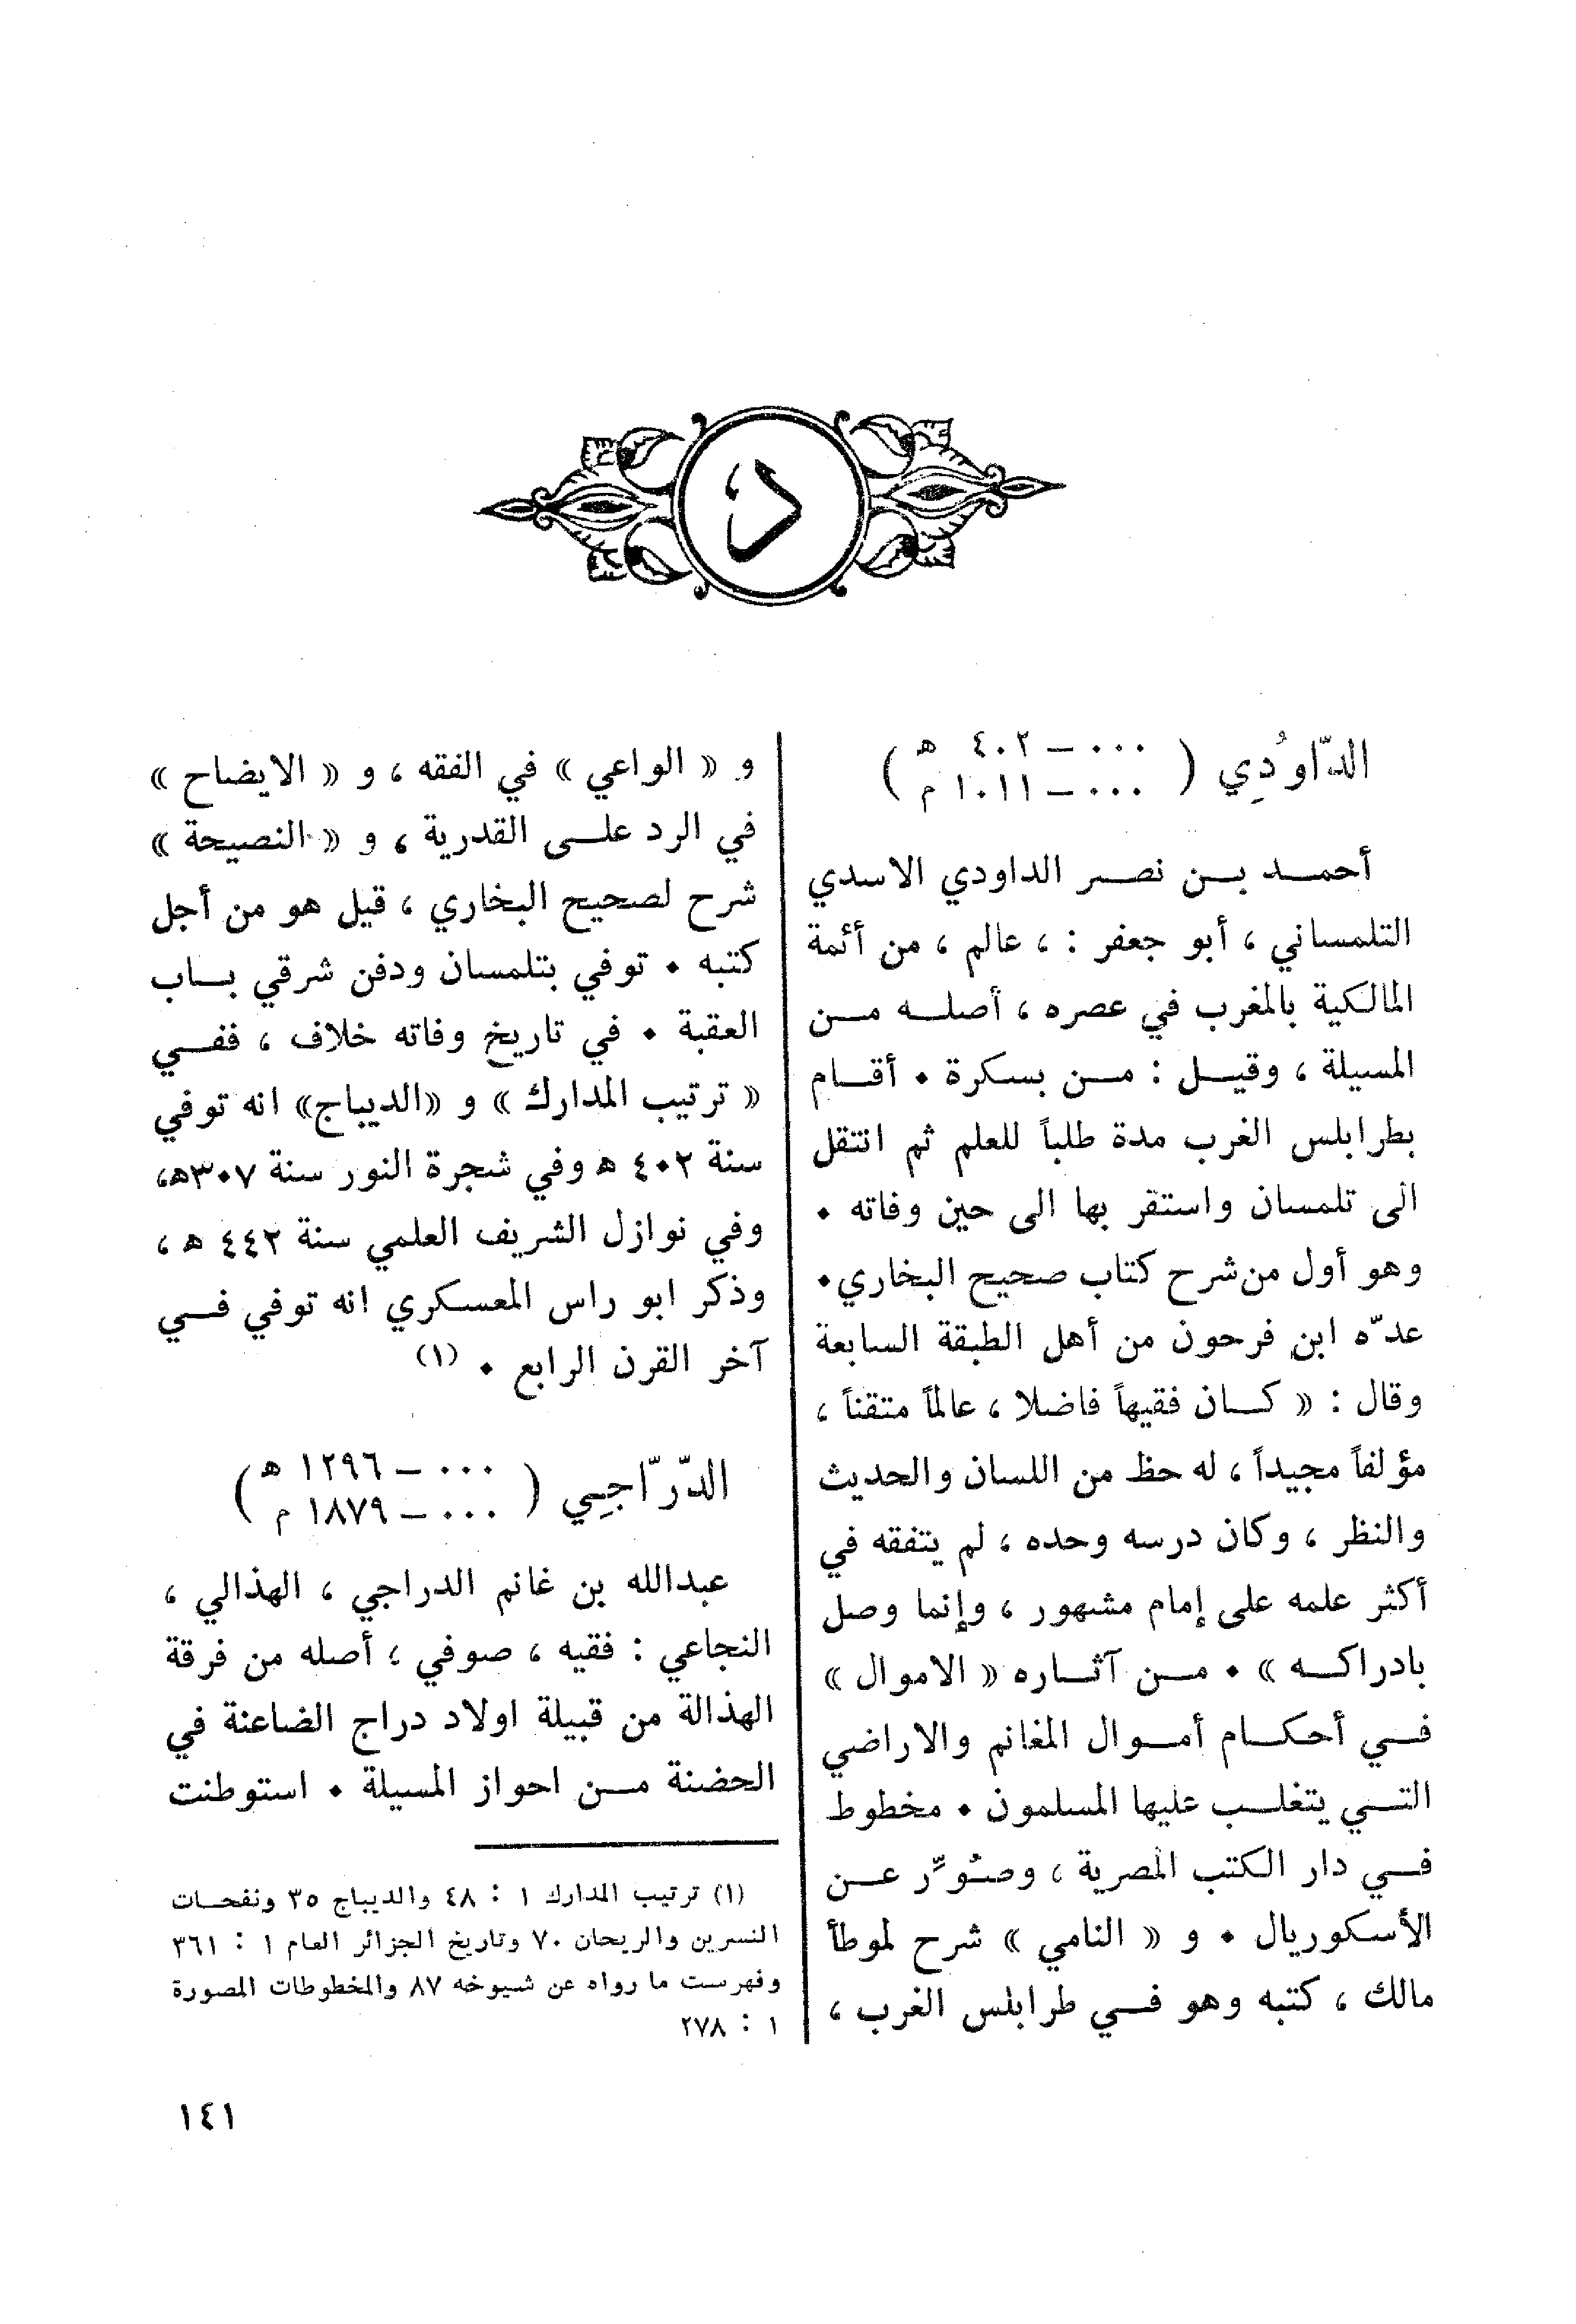 د
الدّاوُدِي ( ٠٠٠ – ٤٠٢ هـ
٠٠٠ – ١٠١١ م )
أحمـد بـن نصـر الداودي الاسدي
التلمساني ، أبو جعفر : ، عالم ، من أئمة
المالكية بالمغرب في عصره ، أصلـه مـن
المسيلة ، وقيـل : مـن بسكرة . أقـام
بطرابلس الغرب مدة طلباً للعلم ثم انتقل
الى تلمسان واستقر بها الى حين وفاته .
وهو أول من شرح كتاب صحيح البخاري .
عدّه ابن فرحون من أهل الطبقة السابعة
وقال : « كـان فقيهاً فاضلا ، عالماً متقناً ،
مؤلفاً مجيداً ، له حظ من اللسان والحديث
والنظر ، وكان درسه وحده ، لم يتفقه في
أكثر علمه على إمام مشهور ، وإنما وصل
بادراكـه » . مـن آثـاره « الاموال »
فـي أحكـام أمـوال المغانم والاراضي
التـي يتغلـب عليها المسلمون . مخطوط
فـي دار الكتب المصرية ، وصُوِّر عـن
الأسكوريال . و « النامي » شرح لموطأ
مالك ، كتبه وهو فـي طرابلس الغرب ،
و « الواعي » في الفقه ، و « الايضاح »
في الرد علـى القدرية ، و « النصيحة »
شرح لصحيح البخاري ، قيل هو من أجل
كتبه . توفي بتلمسان ودفن شرقي بـاب
العقبة . في تاريخ وفاته خلاف ، ففـي
« ترتيب المدارك » و «الديباج» انه توفي
سنة ٤٠٢ هـ وفي شجرة النور سنة ٣٠٧هـ،
وفي نوازل الشريف العلمي سنة ٤٤٢ هـ ،
وذكر ابو راس المعسكري انه توفي فـي
آخر القرن الرابع . (١)
الدّرّاجِي ( ٠٠٠ – ١٢٩٦ هـ
٠٠٠ – ١٨٧٩ م )
عبدالله بن غانم الدراجي ، الهذالي ،
النجاعي : فقيه ، صوفي ، أصله من فرقة
الهذالة من قبيلة اولاد دراج الضاعنة في
الحضنة مـن احواز المسيلة . استوطنت
(١) ترتيب المدارك ١ : ٤٨ والديباج ٣٥ ونفحـات
النسرين والريحان ٧٠ وتاريخ الجزائر العام ١ : ٣٦١
وفهرست ما رواه عن شيوخه ٨٧ والمخطوطات المصورة
١ : ٢٧٨
١٤١